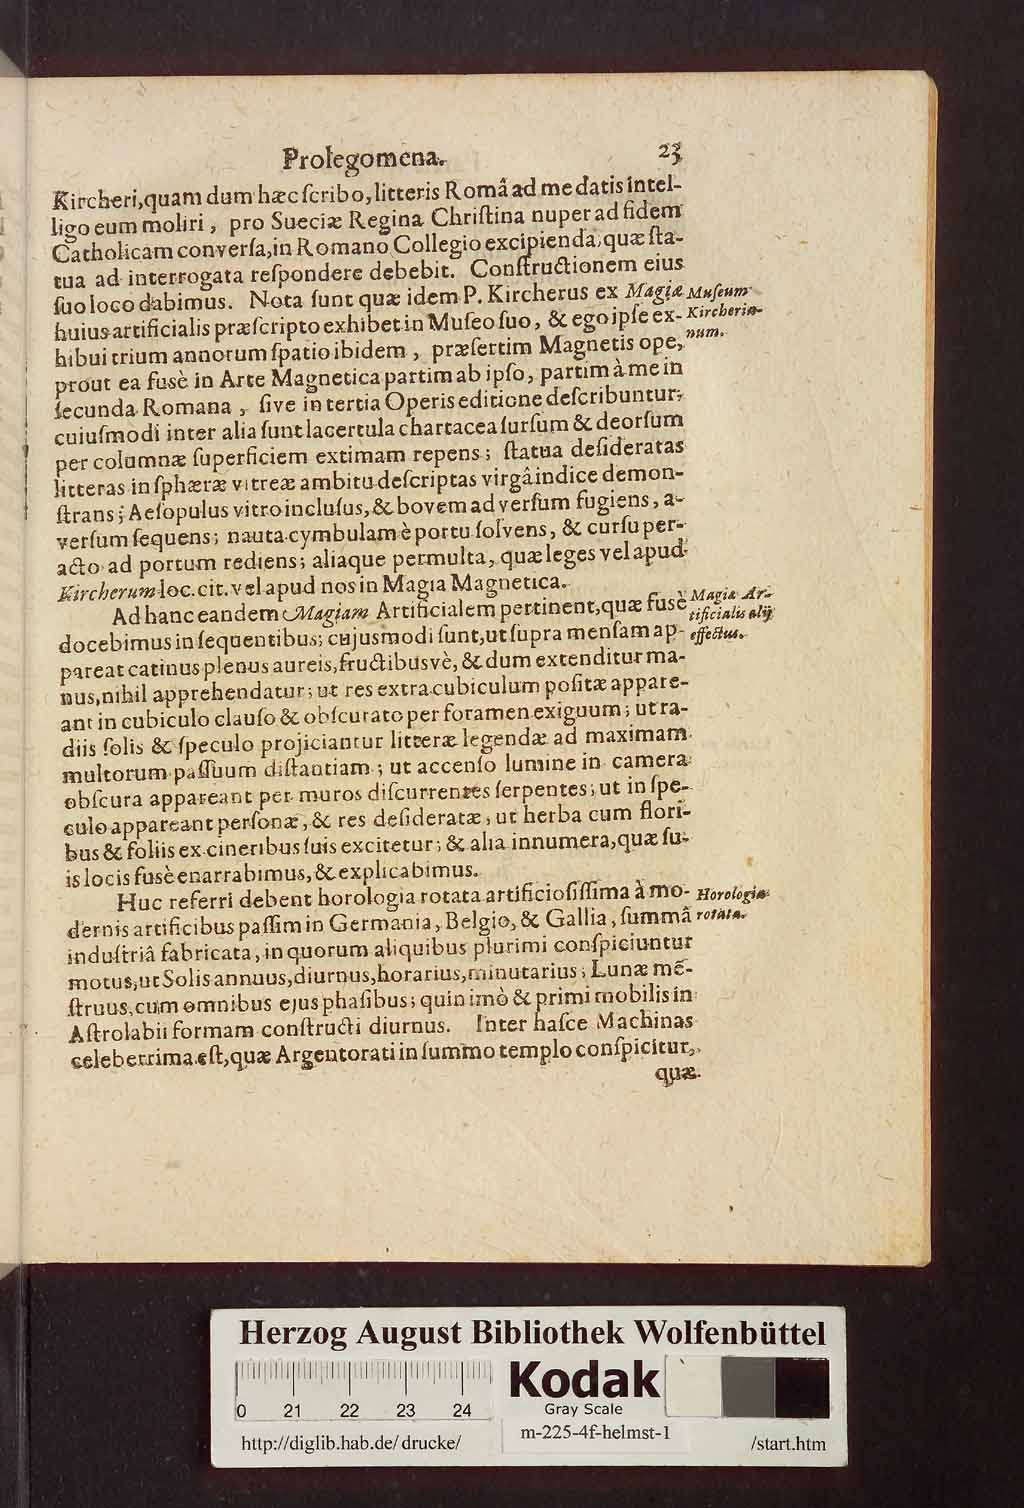 Prolegomena. 23
Kircheri, quam dum hæc ſcribo, litteris Româ ad me datis intel-
ligo eum moliri, pro Sueciæ Regina Chriſtina nuper ad fidem
Catholicam converſa, in Romano Collegio excipienda, quæ ſta-
tua ad interrogata reſpondere debebit. Conſtructionem eius
ſuo loco dabimus. Nota ſunt quæ idem P. Kircherus ex Magiæ
huius artificialis præſcripto exhibet in Muſeo ſuo, & ego ipſe ex-
hibui trium annorum ſpatio ibidem, præſertim Magnetis ope,
prout ea fusè in Arte Magnetica partim ab ipſo, partim à me in
ſecunda Romana, ſive in tertia Operis editione deſcribuntur;
cuiuſmodi inter alia ſunt lacertula chartacea ſurſum & deorſum
per columnæ ſuperficiem extimam repens; ſtatua deſideratas
litteras in ſphæræ vitreæ ambitu deſcriptas virgâ indice demon-
ſtrans; Aeſopulus vitro incluſus, & bovem adverſum fugiens, a-
verſum ſequens; nauta cymbulam è portu ſolvens, & curſu per-
acto ad portum rediens; aliaque permulta, quæ leges vel apud
Kircherum loc. cit. vel apud nos in Magia Magnetica.
Ad hanc eandem Magiam Artificialem pertinent, quæ fusè
docebimus in ſequentibus; cujusmodi ſunt, ut ſupra menſam ap-
pareat catinus plenus aureis, fructibusvè, & dum extenditur ma-
nus, nihil apprehendatur; ut res extra cubiculum poſitæ appare-
ant in cubiculo clauſo & obſcurato per foramen exiguum; ut ra-
diis ſolis & ſpeculo projiciantur litteræ legendæ ad maximam
multorum paſſuum diſtantiam; ut accenſo lumine in camera
obſcura appareant per muros diſcurrentes ſerpentes; ut in ſpe-
culo appareant perſonæ, & res deſideratæ, ut herba cum flori-
bus & foliis ex cineribus ſuis excitetur; & alia innumera, quæ ſu-
is locis fusè enarrabimus, & explicabimus.
Huc referri debent horologia rotata artificioſiſſima à mo-
dernis artificibus paſſim in Germania, Belgio, & Gallia, ſummâ
induſtriâ fabricata, in quorum aliquibus plurimi conſpiciuntur
motus, ut Solis annuus, diurnus, horarius, minutarius; Lunæ mē-
ſtruus, cum omnibus ejus phaſibus; quin imò & primi mobilis in
Aſtrolabii formam conſtructi diurnus. Inter haſce Machinas
celeberrima eſt, quæ Argentorati in ſummo templo conſpicitur,
quæ
Muſeum
Kircheria-
num.
Magiæ Ar-
tificialis alij
effectus.
Horologia
rotata.
Herzog August Bibliothek Wolfenbüttel
0 21 22 23 24
Kodak
Gray Scale
http://diglib.hab.de/drucke/
m-225-4f-helmst-1
/start.htm